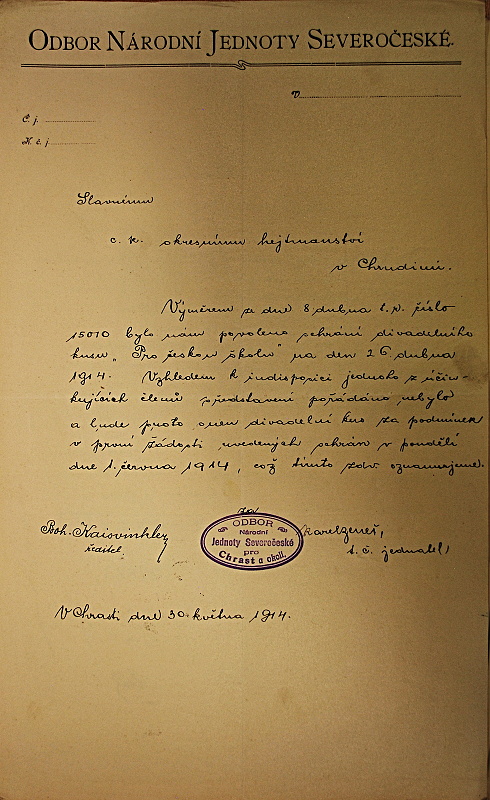 ODBOR NÁRODNÍ JEDNOTY SEVEROČESKÉ.
V
Č. j.
K. č. j.
Slavnému
c. k. okresnímu hejtmanství
v Chrudimi.
Výměrem ze dne 8. dubna t. r. číslo
15010 bylo nám povoleno sehrání divadelního
kusu „Pro českou školu" na den 26 dubna
1914. Vzhledem k indisposici jednoho z účin-
kujících členů představení pořádáno nebylo
a bude proto onen divadelní kus za podmínek
v první žádosti uvedených sehrán v pondělí
dne 1. června 1914, což tímto zdv. oznamujeme.
za
Boh.
ředitel.
ODBOR
Národní
Jednoty Severočeské
pro
Chrast a okolí.
t. č. jednatel
V Chrasti dne 30. května 1914.